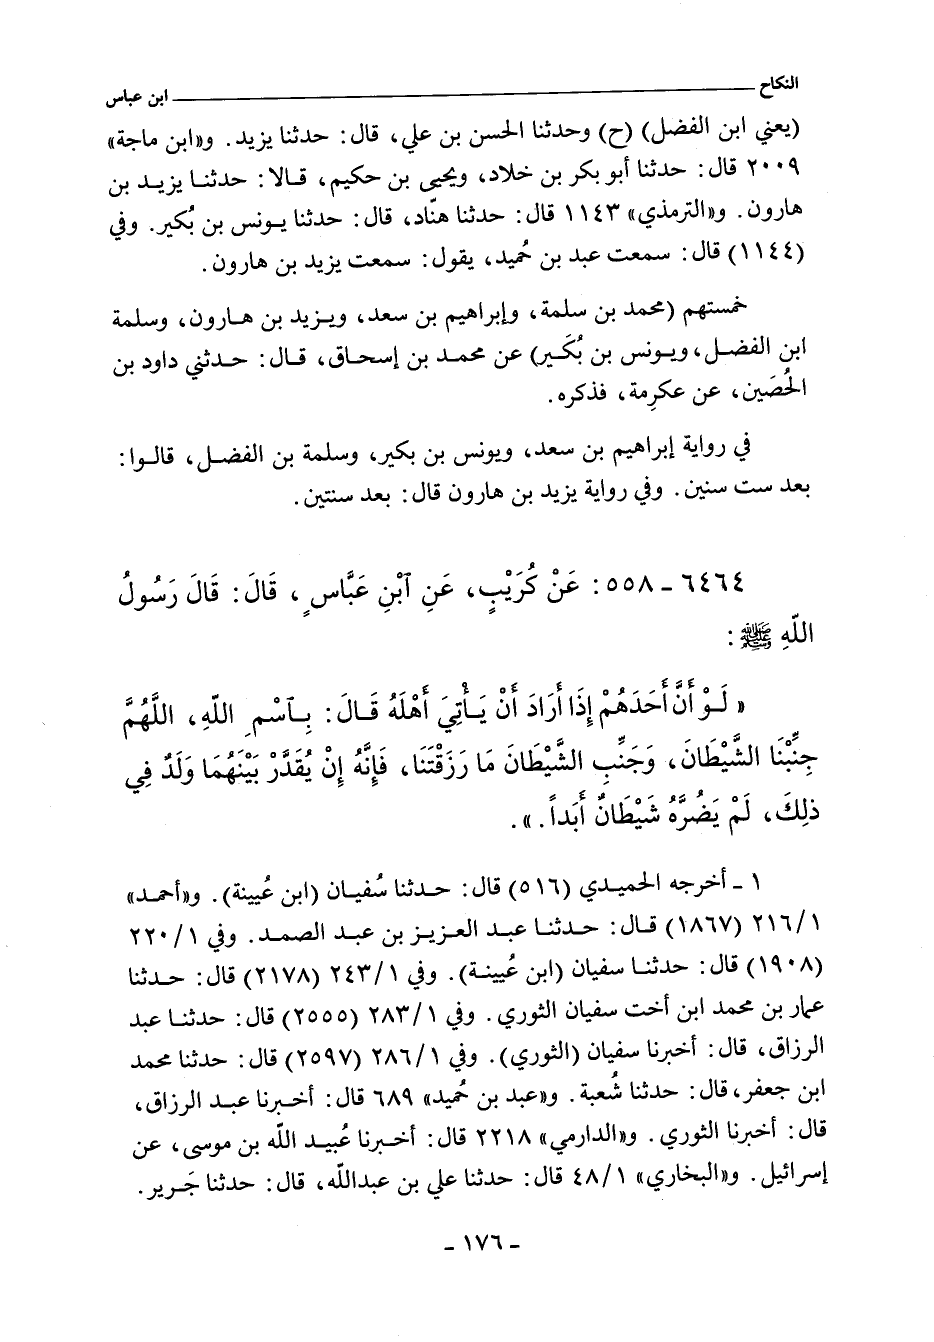 النكاح ــــــ ابن عباس
(يعني ابن الفضل) (ح) وحدثنا الحسن بن علي، قال: حدثنا يزيد. و«ابن ماجة»
٢٠٠٩ قال: حدثنا أبو بكر بن خلاد، ويحيى بن حكيم، قـالا: حدثنـا يزيـد بن
هارون. و«الترمذي» ١١٤٣ قال: حدثنا هنّاد، قال: حدثنا يـونس بن بُكير. وفي
(١١٤٤) قال: سمعت عبد بن حُميد، يقول: سمعت يزيد بن هارون.
خمستهم (محمد بن سلمة، وإبراهيم بن سعد، ويـزيد بن هـارون، وسلمة
ابن الفضـل، ويـونس بن بُكَـير) عن محمـد بن إسحـاق، قـال: حـدثني داود بن
الحُصَين، عن عكرِمة، فذكره.
في رواية إبراهيم بن سعد، ويونس بن بكير، وسلمة بن الفضـل، قالـوا:
بعد ست سنين. وفي رواية يزيد بن هارون قال: بعد سنتين.
٦٤٦٤ ـ ٥٥٨: عَنْ كُرَيْبٍ، عَنِ ٱبْنِ عَبَّاسٍ، قَالَ: قَالَ رَسُولُ
اللّهِ ﷺ:
«لَـوْ أَنَّ أَحَدَهُمْ إِذَا أَرَادَ أَنْ يَـأْتِيَ أَهْلَهُ قَالَ: بِـٱسْمِ اللّهِ، اللَّهُمَّ
جَنِّبْنَا الشَّيْطَانَ، وَجَنِّبِ الشَّيْطَانَ مَا رَزَقْتَنَا، فَإِنَّهُ إِنْ يُقَدَّرْ بَيْنَهُمَا وَلَدٌ فِي
ذلِكَ، لَمْ يَضُرَّهُ شَيْطَانٌ أَبَداً.».
١ ـ أخرجه الحميدي (٥١٦) قال: حـدثنا سُفيـان (ابن عُيينة). و«أحمـد»
٢١٦/١ (١٨٦٧) قـال: حـدثنـا عبـد العـزيـز بن عبـد الصمـد. وفي ٢٢٠/١
(١٩٠٨) قال: حدثنـا سفيان (ابن عُيينـة). وفي ٢٤٣/١ (٢١٧٨) قال: حـدثنا
عمار بن محمد ابن أخت سفيان الثوري. وفي ٢٨٣/١ (٢٥٥٥) قال: حدثنـا عبد
الرزاق، قال: أخبرنا سفيان (الثوري). وفي ٢٨٦/١ (٢٥٩٧) قال: حدثنا محمد
ابن جعفر، قال: حدثنا شُعبة. و«عبد بن حُميد» ٦٨٩ قال: أخبرنا عبـد الرزاق،
قال: أخبرنا الثوري. و«الدارمي» ٢٢١٨ قال: أخـبرنا عُبيد الله بن موسى، عن
إسرائيل. و«البخاري» ٤٨/١ قال: حدثنا علي بن عبدالله، قال: حدثنا جَرير.
ـ ١٧٦ ـ